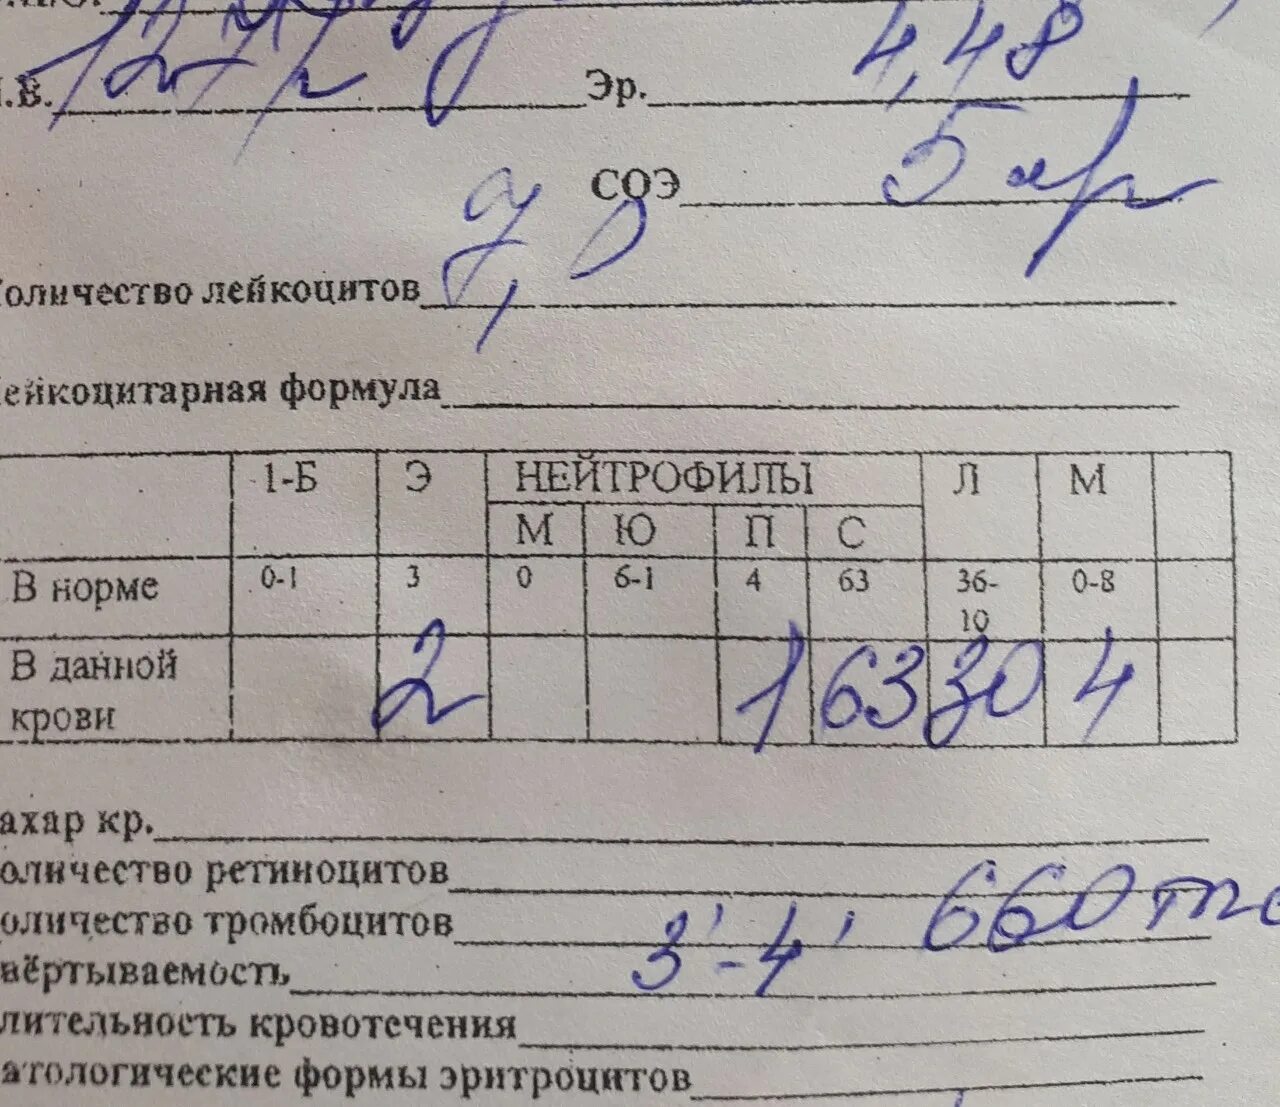 .В. 127 г Эр. 4,48
СОЭ 5 мм
оличество лейкоцитов
ейкоцитарная формула
1-Б Э НЕЙТРОФИЛЫ Л М
М Ю П С
В норме 0-1 3 0 6-1 4 63 36-10 0-8
В данной крови 2 1 63 30 4
ахар кр.
оличество ретиноцитов
оличество тромбоцитов 660 тыс
вёртываемость 3'-4'
лительность кровотечения
атологические формы эритроцитов